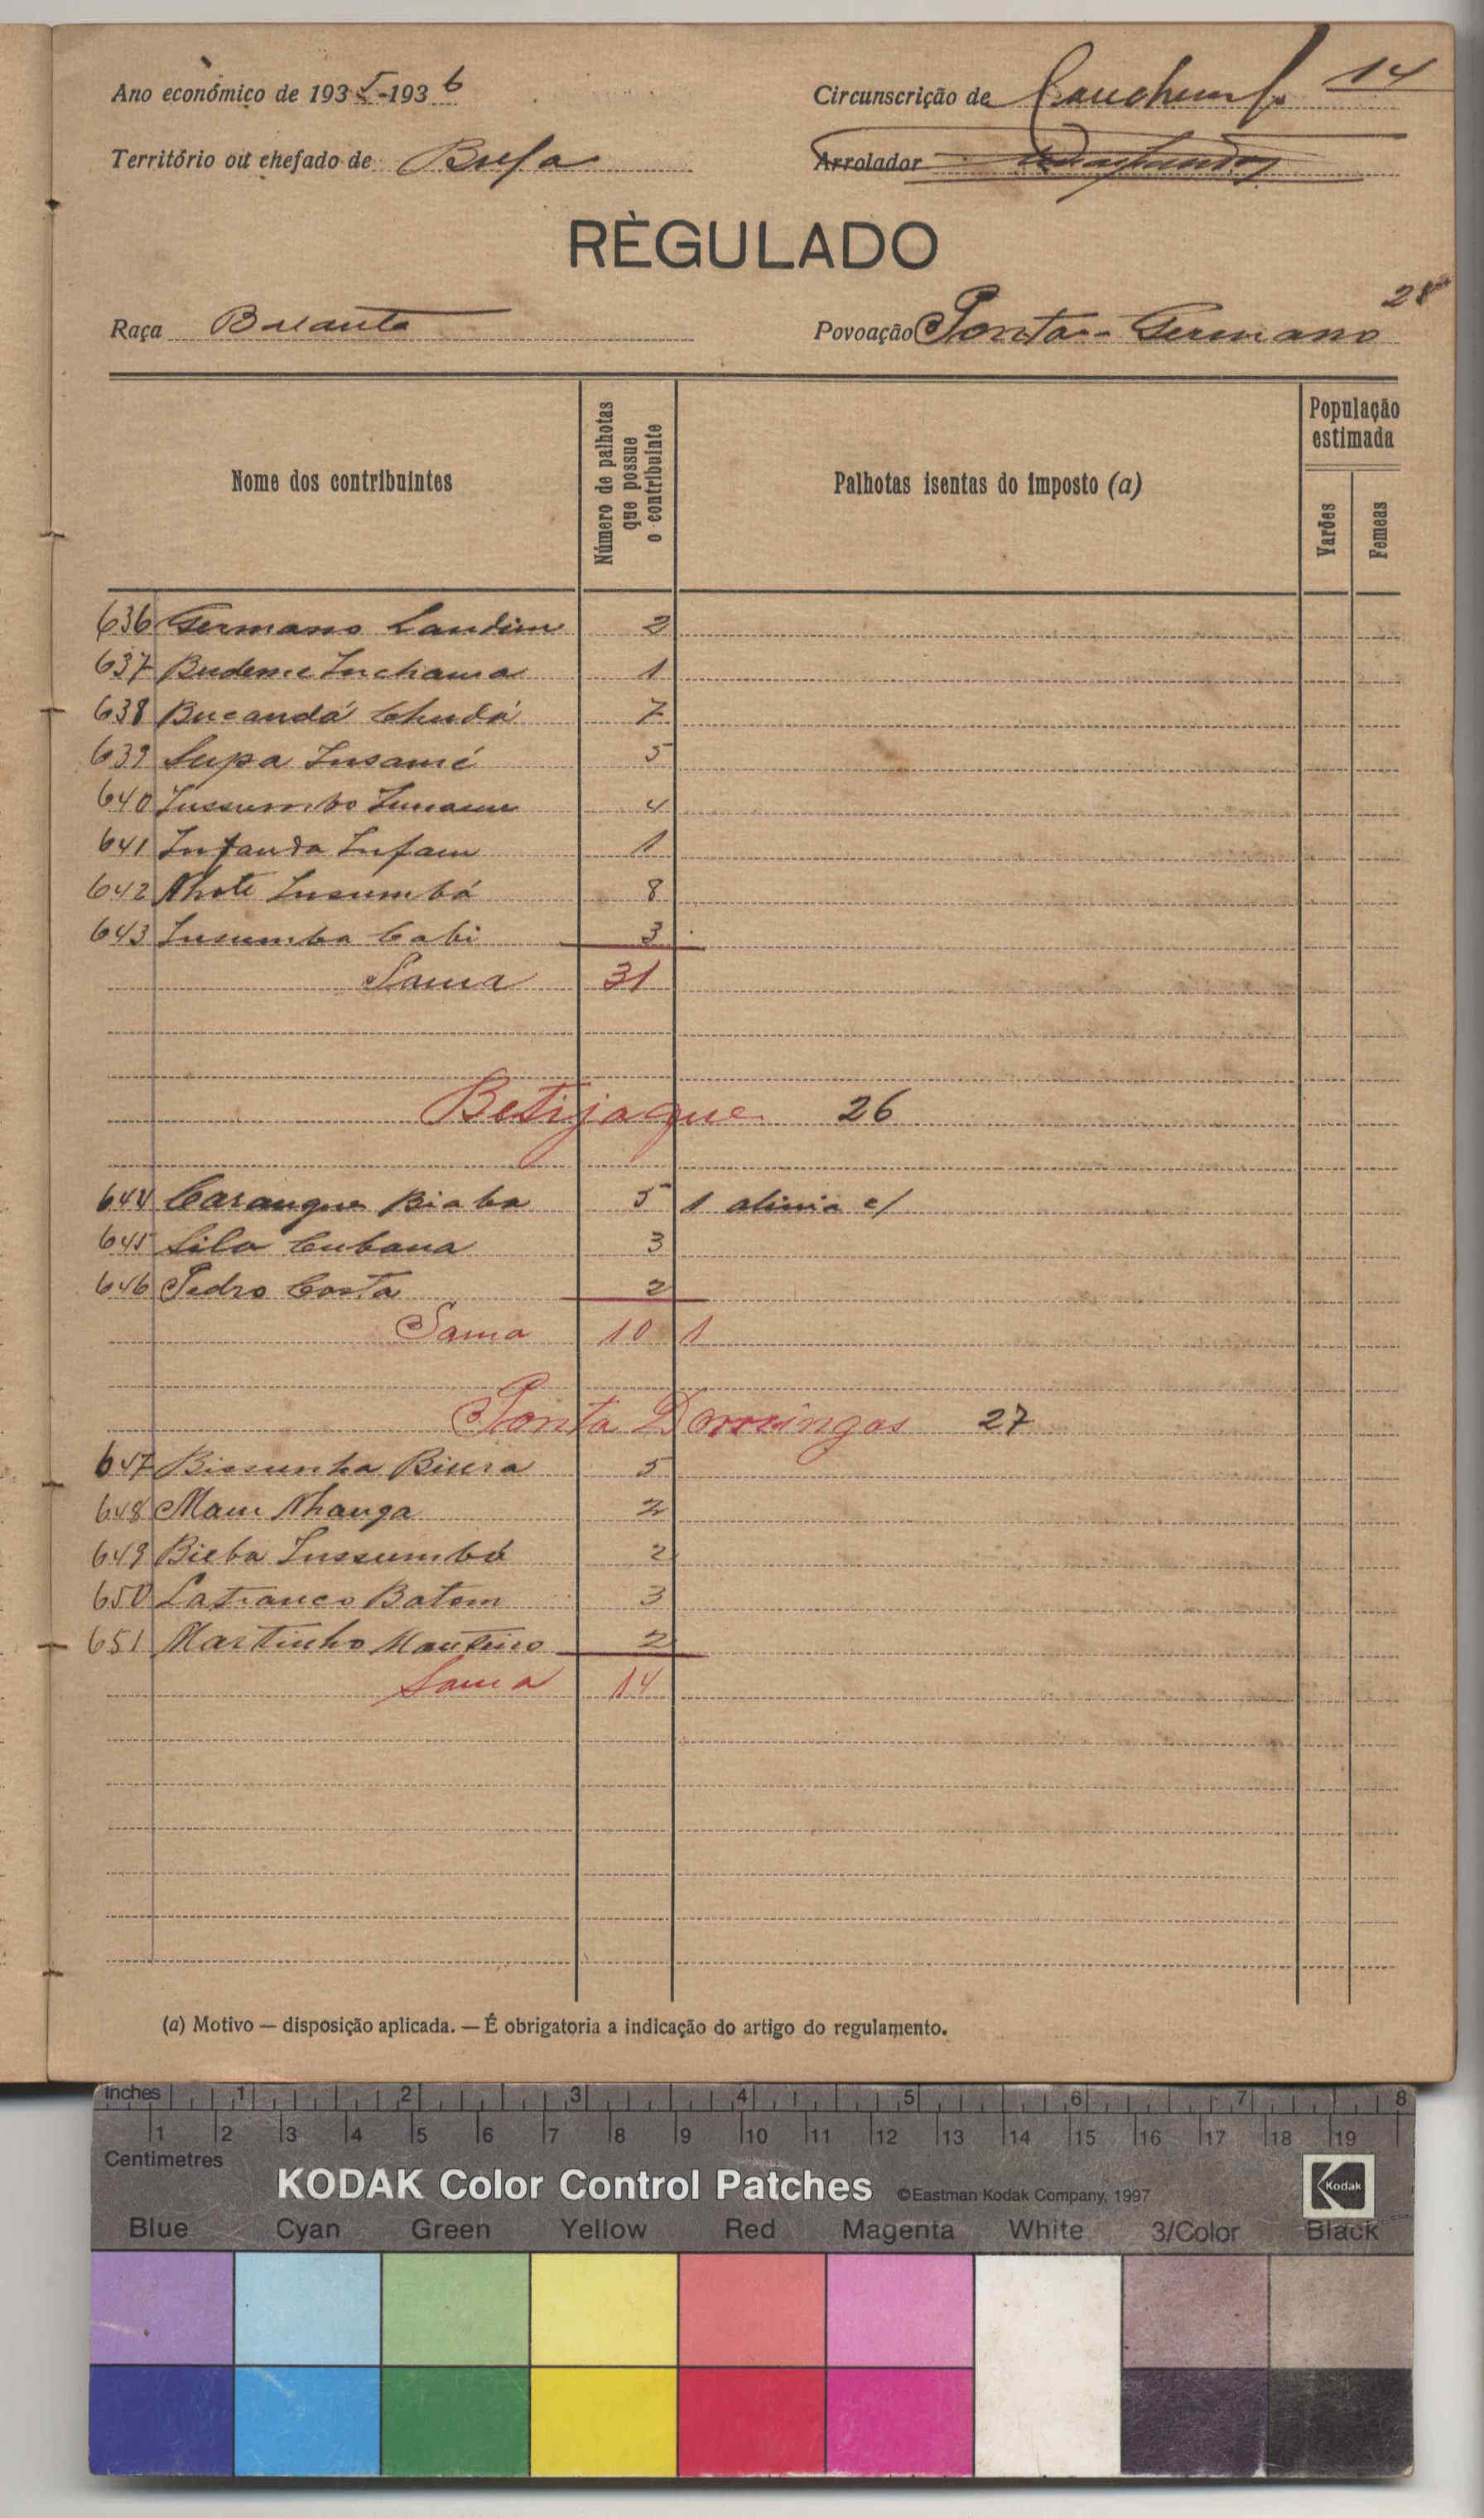 Ano económico de 1935-1936
Circunscrição de 14
Território ou chefado de Bula
Arrolador
RÈGULADO
Raça
Povoação Ponta-Germano 28
Nome dos contribuintes
Número de palhotas que possue o contribuinte
Palhotas isentas do imposto (a)
População estimada
Varões
Femeas
636 Germano Landim 2
637 1
638 Bucandá Chudá 7
639 Supa Insamé 5
640 4
641 Infanda 1
642 Nhoté Insumbá 8
643 Insumba Cabi 3
Soma 31
Betijaque 26
644 Carangue Biaba 5 1 alinia c/
645 Lila Cubana 3
646 Pedro Costa 2
Soma 10 1
Ponta Domingos 27
647 5
648 Nhanga 2
649 Bieba Inssumbá 2
650 Batom 3
651 Martinho Monteiro 2
Soma 14
(a) Motivo — disposição aplicada. — É obrigatoria a indicação do artigo do regulamento.
Inches 1 2 3 4 5 6 7 8
1 2 3 4 5 6 7 8 9 10 11 12 13 14 15 16 17 18 19
Centimetres
KODAK Color Control Patches ©Eastman Kodak Company, 1997 Kodak
Blue Cyan Green Yellow Red Magenta White 3/Color Black